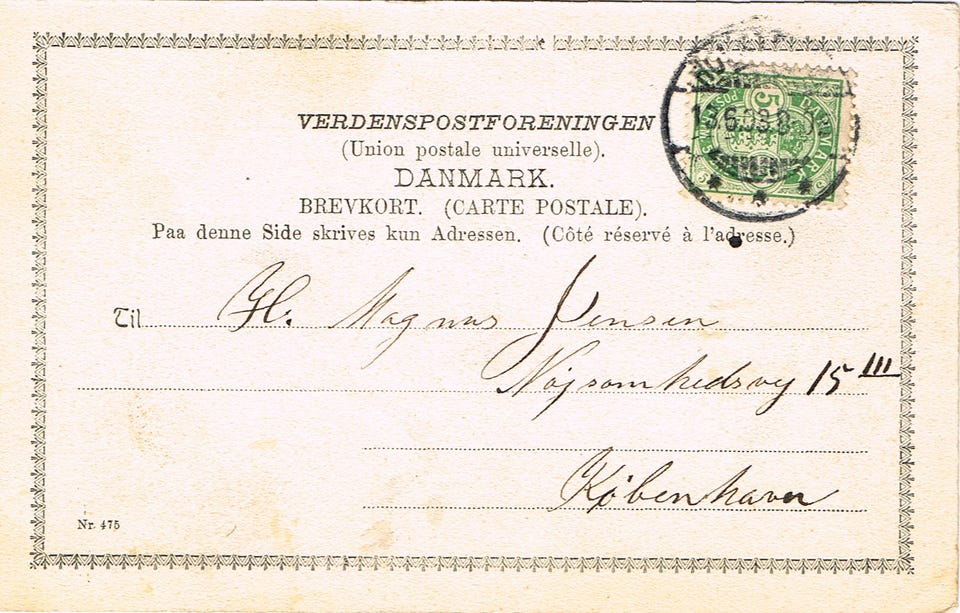 VERDENSPOSTFORENINGEN
(Union postale universelle).
DANMARK.
BREVKORT. (CARTE POSTALE).
Paa denne Side skrives kun Adressen. (Côté réservé à l'adresse.)
5
DANMARK
Til Hr. Magnus Jensen
Nøjsomhedsvej 15 III
København
Nr. 475